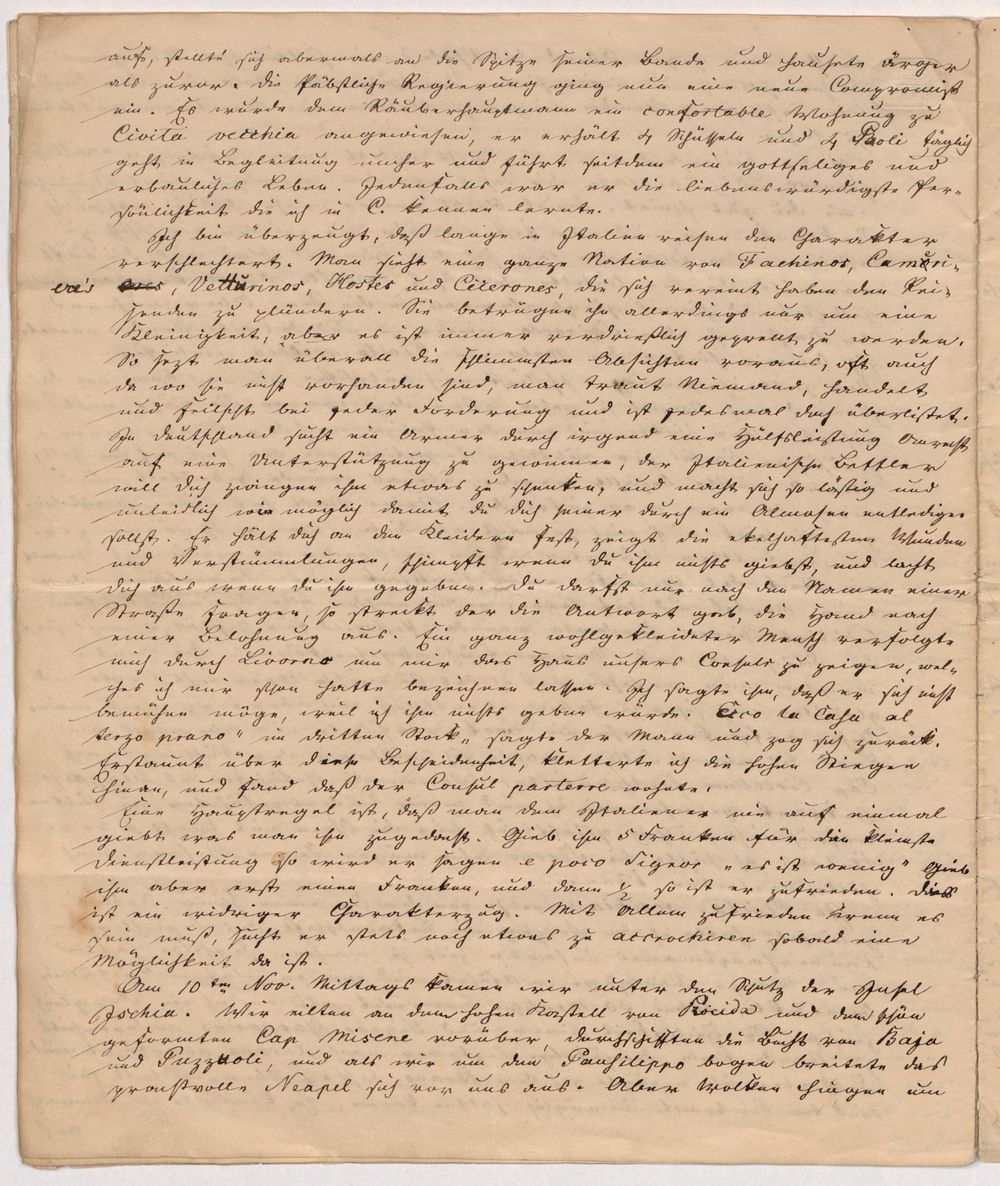 aus, stellte sich abermals an die Spitze seiner Bande und hausete ärger
als zuvor. Die Päbstliche Regierung ging nun eine neue Compromiß
ein. Es wurde dem Räuberhauptmann ein confortable Wohnung zu
Civita vecchia angewiesen, er erhält 4 Schüsseln und 4 Paoli täglich
geht in Begleitung umher und führt seitdem ein gottseliges und
erbauliches Leben. Jedenfalls war er die liebenswürdigste Per-
sönlichkeit die ich in C. kennen lernte.
Ich bin überzeugt, daß lange in Italien reisen den Charakter
verschlechtert. Man sieht eine ganze Nation von Fachinos, Cameri-
ere's, Vetturinos, Hostes und Cicerones, die sich vereint haben den Rei-
senden zu plündern. Sie betrügen ihn allerdings nur um eine
Kleinigkeit, aber es ist immer verdrießlich geprellt zu werden.
So sezt man überall die schlimmsten Absichten voraus, oft auch
da wo sie nicht vorhanden sind, man traut Niemand, handelt
und feilscht bei jeder Forderung und ist jedesmal doch überlistet.
In Deutschland sucht ein Armer durch irgend eine Hülfsleistung Anrecht
auf eine Unterstützung zu gewinnen, der Italienische Bettler
will dich zwingen ihm etwas zu schenken, und macht sich so lästig und
unleidlich wie möglich damit du dich seiner durch ein Almosen entledigen
sollst. Er hält dich an den Kleidern fest, zeigt die ekelhaftesten Wunden
und Verstümmlungen, schimpft wenn du ihm nichts giebst, und lacht
dich aus wenn du ihm gegeben. Du darfst nur nach dem Namen einer
Straße fragen, so streckt der die Antwort gab, die Hand nach
einer Belohnung aus. Ein ganz wohlgekleideter Mensch verfolgte
mich durch Livorno um mir das Haus unsers Consuls zu zeigen, wel-
ches ich mir schon hatte bezeichnen lassen. Ich sagte ihm, daß er sich nicht
bemühen möge, weil ich ihm nichts geben würde. Ecco la Casa al
terzo piano" im dritten Stock" sagte der Mann und zog sich zurück.
Erstaunt über diese Bescheidenheit, kletterte ich die hohen Stiegen
hinan, und fand daß der Consul parterre wohnte.
Eine Hauptregel ist, daß man dem Italiener nie auf einmal
giebt was man ihm zugedacht. Gieb ihm 5 Franken für den kleinste
Dienstleistung so wird er sagen e poco Signor „es ist wenig" Gieb
ihm aber erst einen Franken, und dann ½ so ist er zufrieden. Dies
ist ein widriger Charakterzug. Mit Allem zufrieden wenn es
sein muß, sucht er stets noch etwas zu accrochiren sobald eine
Möglichkeit da ist.
Am 10ten Nov. Mittags kamen wir unter den Schutz der Insel
Ischia. Wir eilten an dem hohen Kastell von Procida und dem schön
geformten Cap Misene vorüber, durchschifften die Bucht von Baja
und Puzzuoli, und als wir um den Pausilippo bogen breitete das
prachtvolle Neapel sich vor uns aus. Aber Wolken hingen um